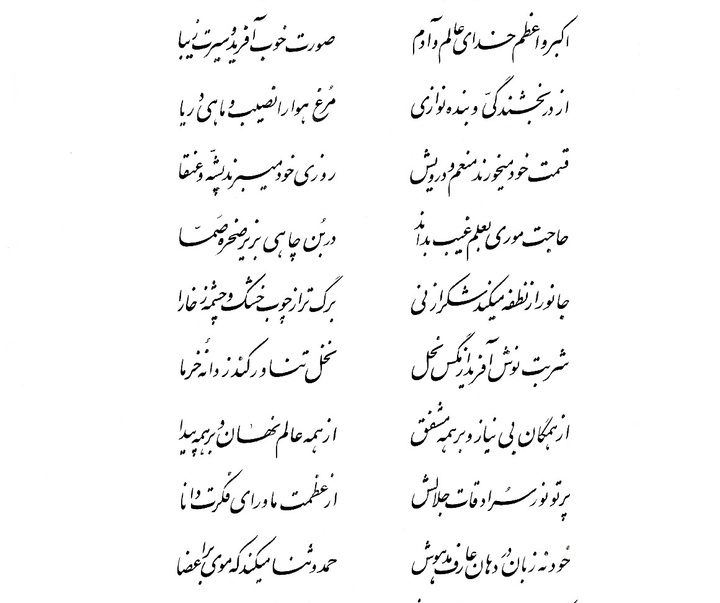 اکبر و اعظم خدای عالم و آدم صورت خوب آفرید و سیرت زیبا
از در بخشندگی و بنده نوازی مرغ هوا را نصیب و ماهی دریا
قسمت خود میخورند منعم و درویش روزی خود میبرند پشّه و عنقا
حاجت موری بعلم غیب بداند در بُن چاهی بزیر صخره صمّا
جانور از نطفه میکند شکر از نی برگ تر از چوب خشک و چشمه ز خارا
شربت نوش آفرید از مگس نحل نخل تناور کند ز دانهٔ خرما
از همگان بی نیاز و بر همه مشفق از همه عالم نهان و بر همه پیدا
پرتو نور سرادقات جلالش از عظمت ماورای فکرت دانا
خود نه زبان در دهان عارف مدهوش حمد و ثنا میکند که موی بر اعضا